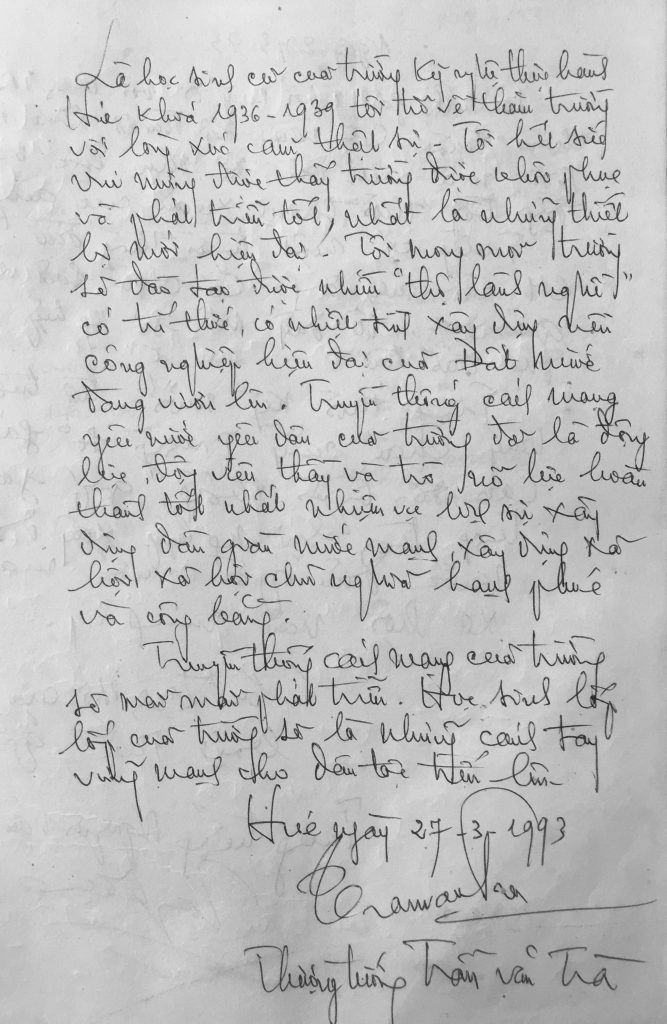 Là học sinh cũ của trường Kỹ nghệ thực hành
Huế khoá 1936-1939 tôi trở về thăm trường
với lòng xúc cảm thật sự - Tôi hết sức
vui mừng được thấy trường được khôi phục
và phát triển tốt, nhất là những thiết
bị mới hiện đại. Tôi mong mỏi trường
sẽ đào tạo được nhiều "thợ lành nghề"
có trí thức, có nhiệt tình xây dựng nền
công nghiệp hiện đại của Đất nước
đang vươn lên. Truyền thống cách mạng
yêu nước yêu dân của trường đã là động
lực, động viên thầy và trò nỗ lực hoàn
thành tốt nhất nhiệm vụ lịch sử xây
dựng dân giàu nước mạnh, xây dựng xã
hội xã hội chủ nghĩa hạnh phúc
và công bằng.
Truyền thống cách mạng của trường
sẽ mãi mãi phát triển. Học sinh lớp
lớp của trường sẽ là những cánh tay
vững mạnh cho dân tộc tiến lên.
Huế ngày 27-3-1993
Tranvantra
Thượng tướng Trần Văn Trà